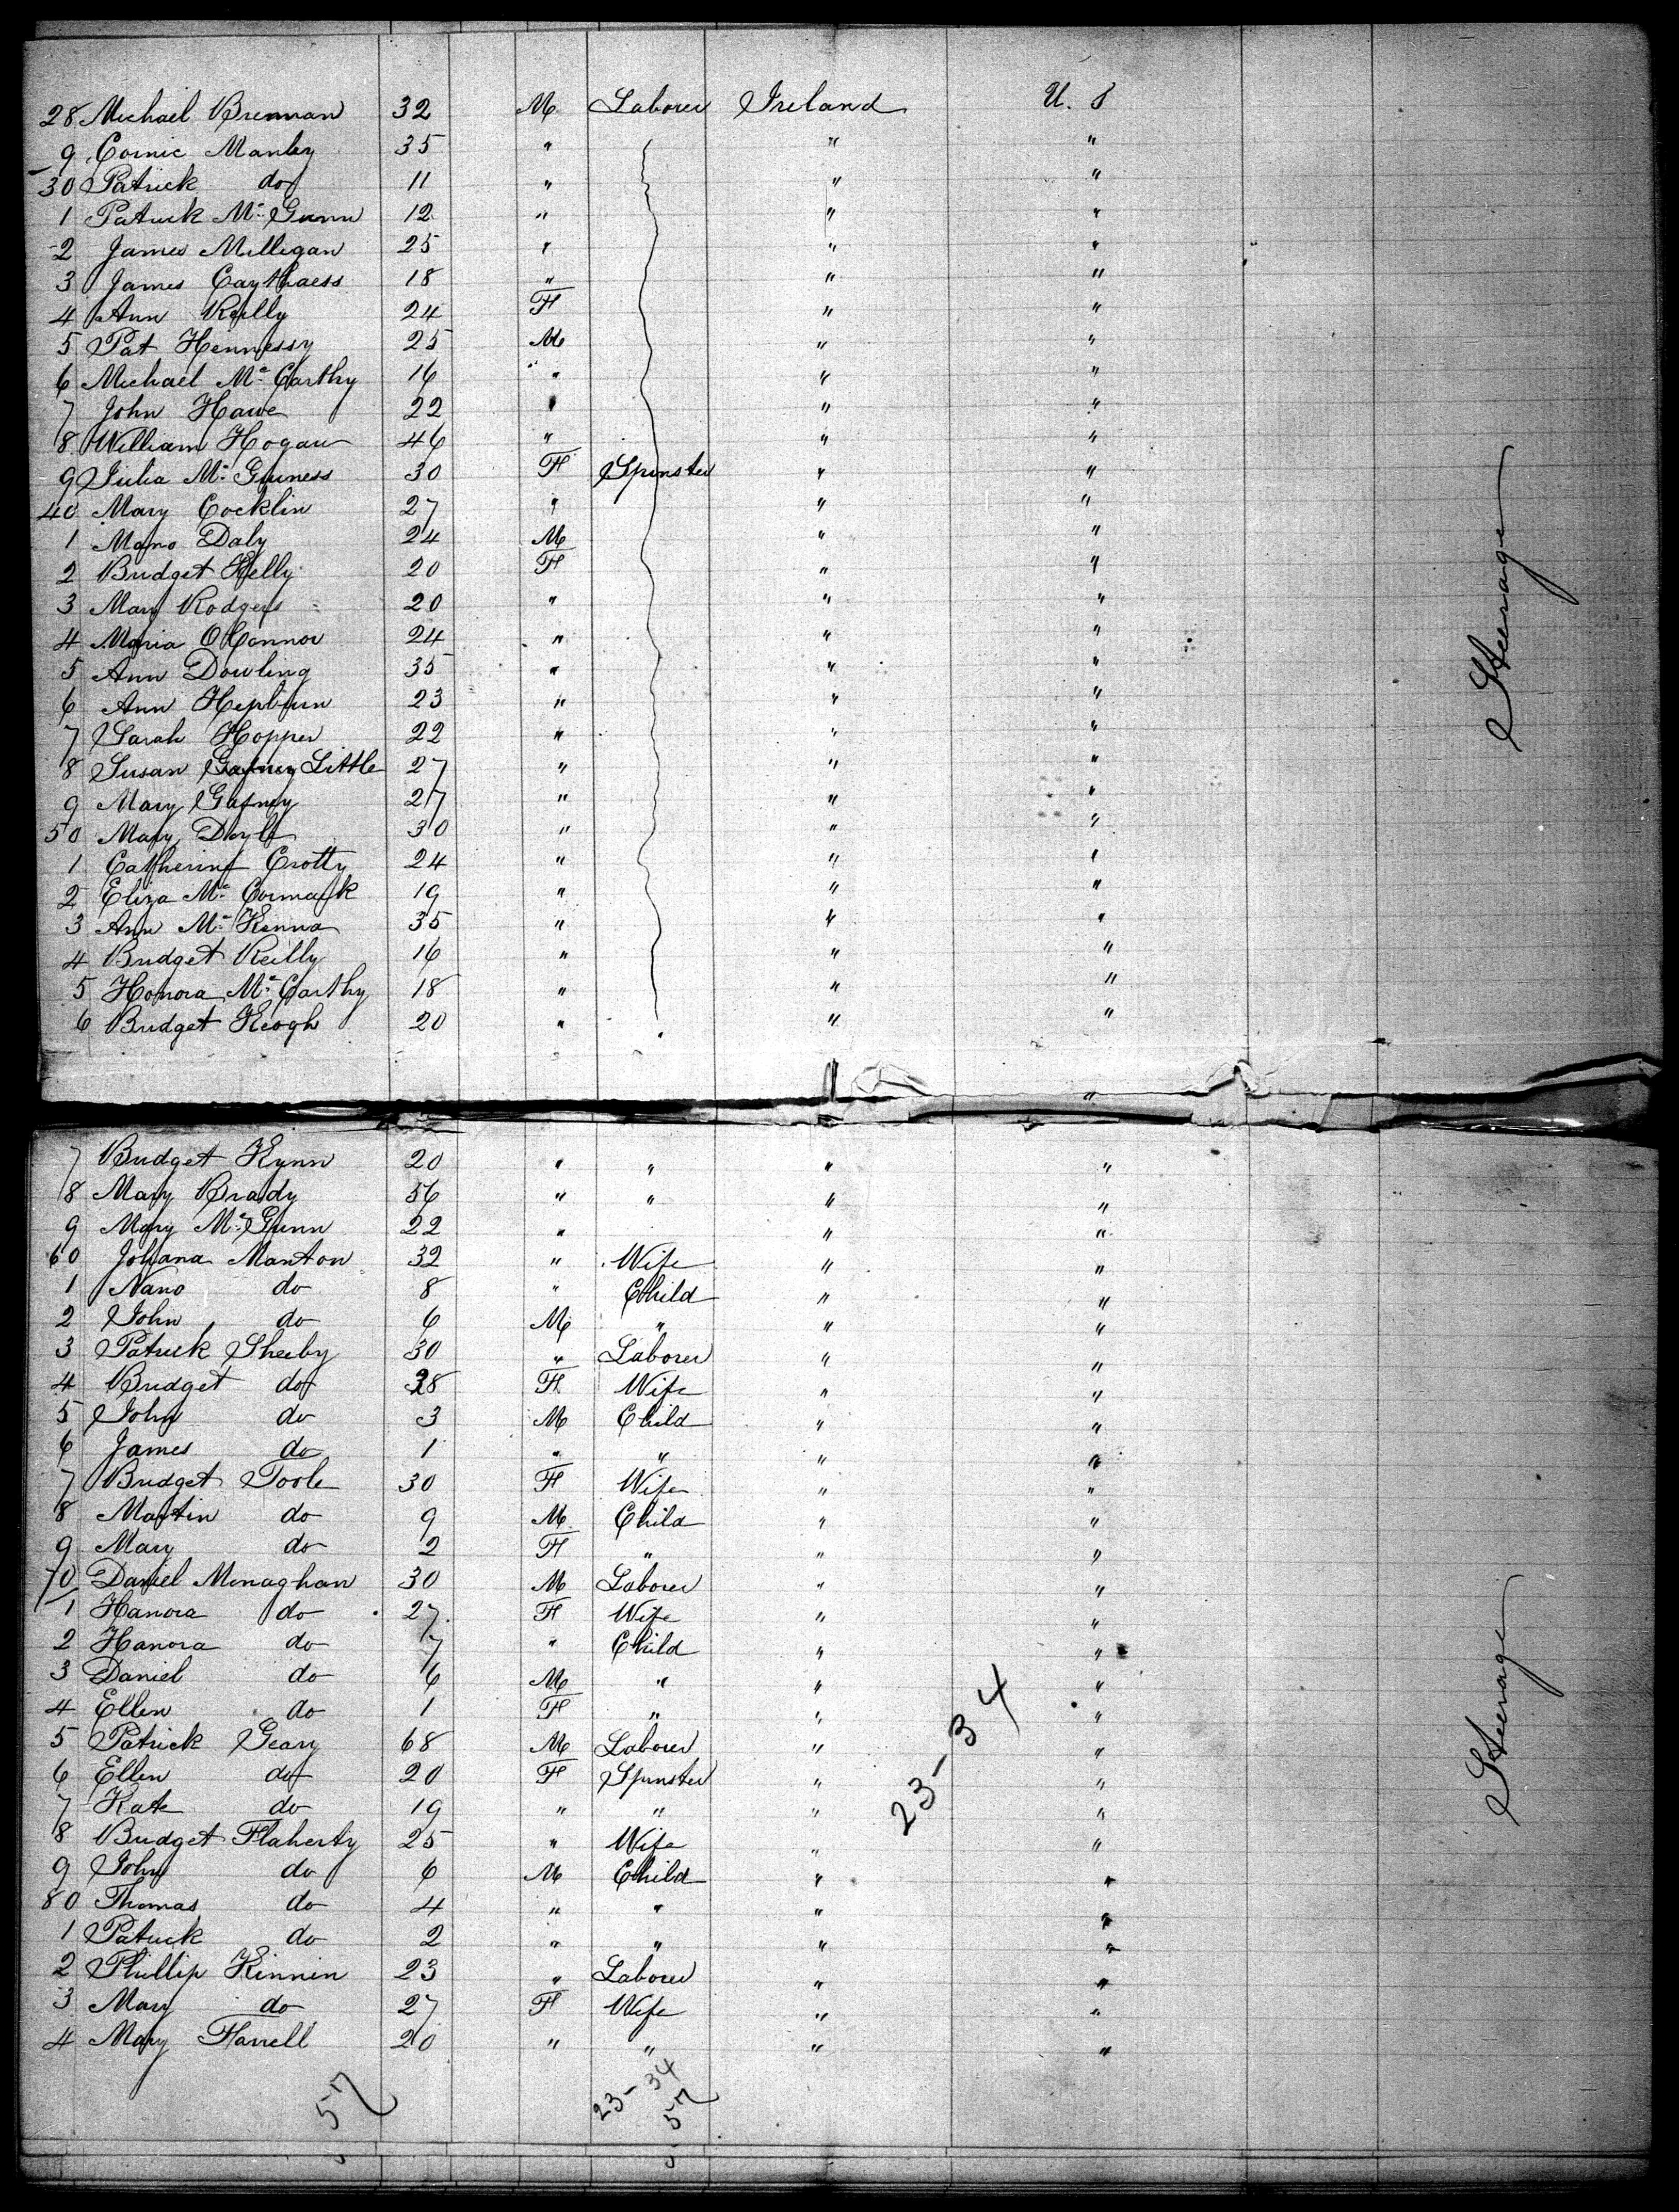 28 Michael Brennan 32 M Laborer Ireland U. S
9 Cornic Manley 35 " " "
30 Patrick do 11 " " "
1 Patrick Mc Gunn 12 " " "
2 James Milligan 25 " " "
3 James 18 " " "
4 Ann Reilly 24 F " "
5 Pat Hennessy 25 M " "
6 Michael Mc Carthy 16 " " "
7 John Hawe 22 " " "
8 William Hogan 46 " " "
9 Julia Mc Guiness 30 F Spinster " "
40 Mary Cocklin 27 " " "
1 Daly 24 M " "
2 Bridget Kelly 20 F " "
3 Mary Rodgers 20 " " "
4 Maria O Connor 24 " " "
5 Ann Dowling 35 " " "
6 Ann Hepburn 23 " " "
7 Sarah Hopper 22 " " "
8 Susan Gafney Little 27 " " "
9 Mary Gafney 27 " " "
50 Mary Doyle 30 " " "
1 Catherine Crotty 24 " " "
2 Eliza Mc Cormack 19 " " "
3 Ann Mc Kenna 35 " " "
4 Bridget Reilly 16 " " "
5 Honora Mc Carthy 18 " " "
6 Bridget Keogh 20 " " "
Steerage
7 Bridget Kynn 20 " " " "
8 Mary Brady 56 " " " "
9 Mary Mc Gunn 22 " " "
60 Johana Manton 32 " Wife " "
1 Nano do 8 " Child " "
2 John do 6 M " " "
3 Patrick Sheeby 30 " Laborer " "
4 Bridget do 28 F Wife " "
5 John do 3 M Child " "
6 James do 1 " " " "
7 Bridget Toole 30 F Wife " "
8 Martin do 9 M Child " "
9 Mary do 2 F " " "
70 Daniel Monaghan 30 M Laborer " "
1 Hanora do 27 F Wife " "
2 Hanora do 7 " Child " "
3 Daniel do 6 M " " "
4 Ellen do 1 F " " "
5 Patrick Geary 68 M Laborer " "
6 Ellen do 20 F Spinster " "
7 Kate do 19 " " " "
8 Bridget Flaherty 25 " Wife " "
9 John do 6 M Child " "
80 Thomas do 4 " " " "
1 Patrick do 2 " " " "
2 Phillip Kinnin 23 " Laborer " "
3 Mary do 27 F Wife " "
4 Mary Farrell 20 " " " "
23-34
Steerage
57
23-34
57